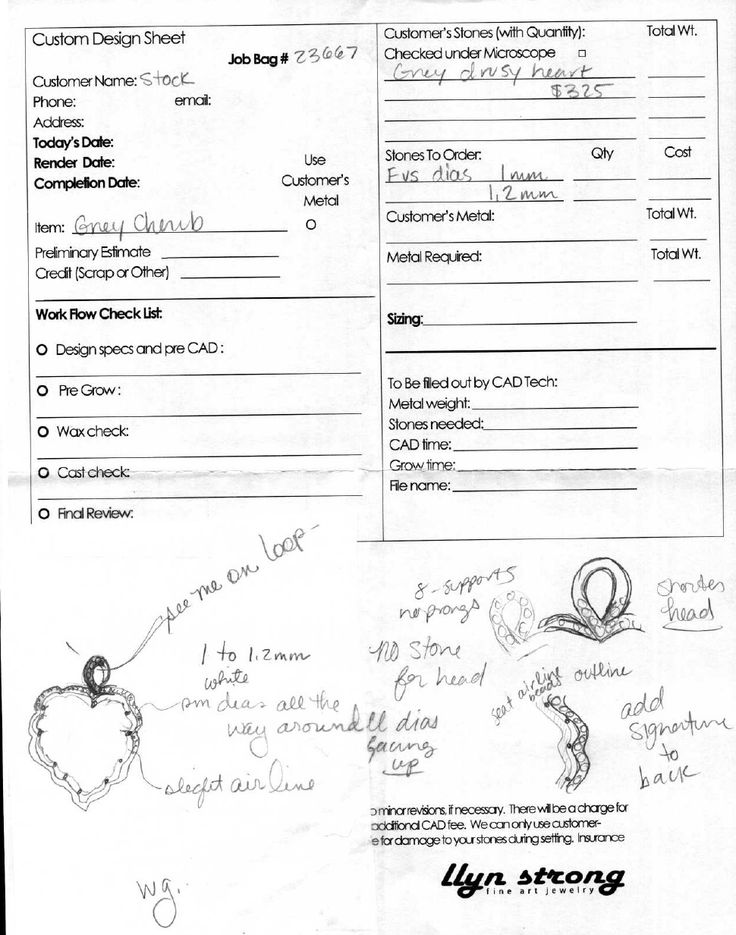 Custom Design Sheet
Job Bag # 23667
Customer Name: Stock
Phone: email:
Address:
Today's Date:
Render Date:
Completion Date:
Use
Customer's
Metal
Item: Grey Cherub O
Preliminary Estimate
Credit (Scrap or Other)
Work Flow Check List:
O Design specs and pre CAD :
O Pre Grow :
O Wax check:
O Cast check:
O Final Review:
Customer's Stones (with Quantity): Total Wt.
Checked under Microscope □
Grey drusy heart
$325
Stones To Order: Qty Cost
Fvs dias 1mm
1,2mm
Customer's Metal: Total Wt.
Metal Required: Total Wt.
Sizing:
To Be filled out by CAD Tech:
Metal weight:
Stones needed:
CAD time:
Grow time:
File name:
see me on loop-
1 to 1.2mm
white
sm dias all the
way around
slight airline
wg.
8-supports
no prongs
shorter
head
no stone
for head
ll dias
facing
up
seat airline
beads
outline
add
signature
to
back
o minor revisions, if necessary. There will be a charge for
additional CAD fee. We can only use customer-
e for damage to your stones during setting. Insurance
llyn strong
fine art jewelry